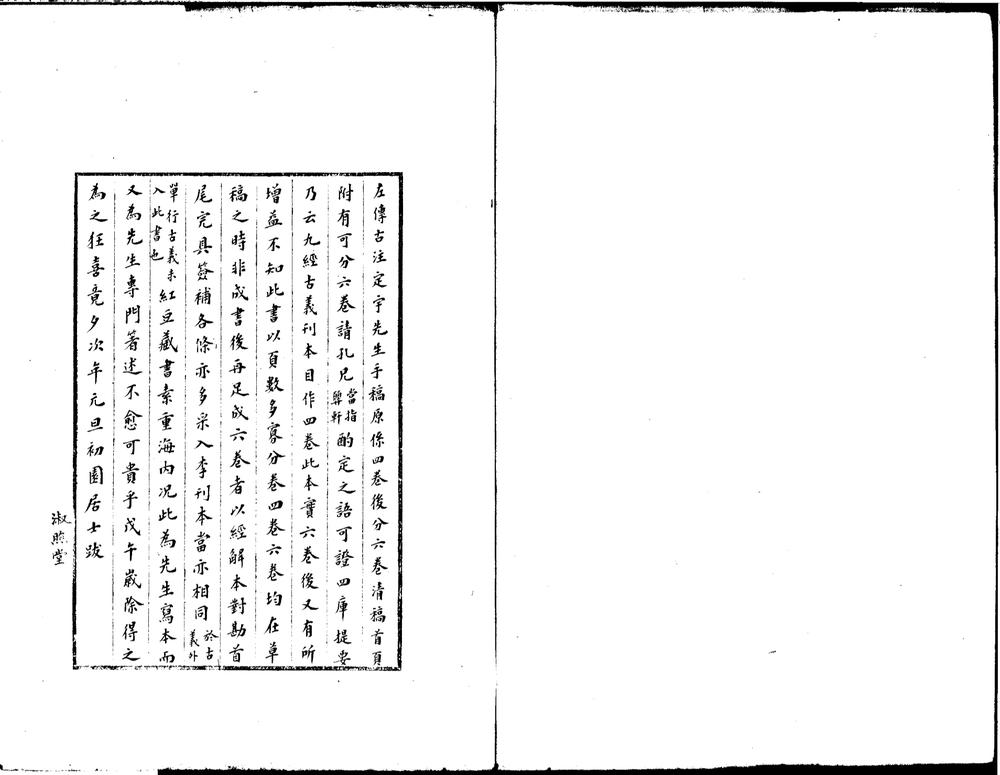 左傳古注定宇先生手稿原係四卷後分六卷清稿首頁
附有可分六卷請孔兄當指䔥軒酌定之語可證四庫提要
乃云九經古義刊本目作四卷此本實六卷後又有所
增益不知此書以頁數多寡分卷四卷六卷均在草
稿之時非成書後再足成六卷者以經解本對勘首
尾完具簽補各條亦多采入李刊本當亦相同於古義外
單行古義未入此書也紅豆藏書素重海內况此為先生寫本而
又為先生專門著述不愈可貴乎戊午歲除得之
為之狂喜竟夕次年元旦初園居士跋
淑照堂